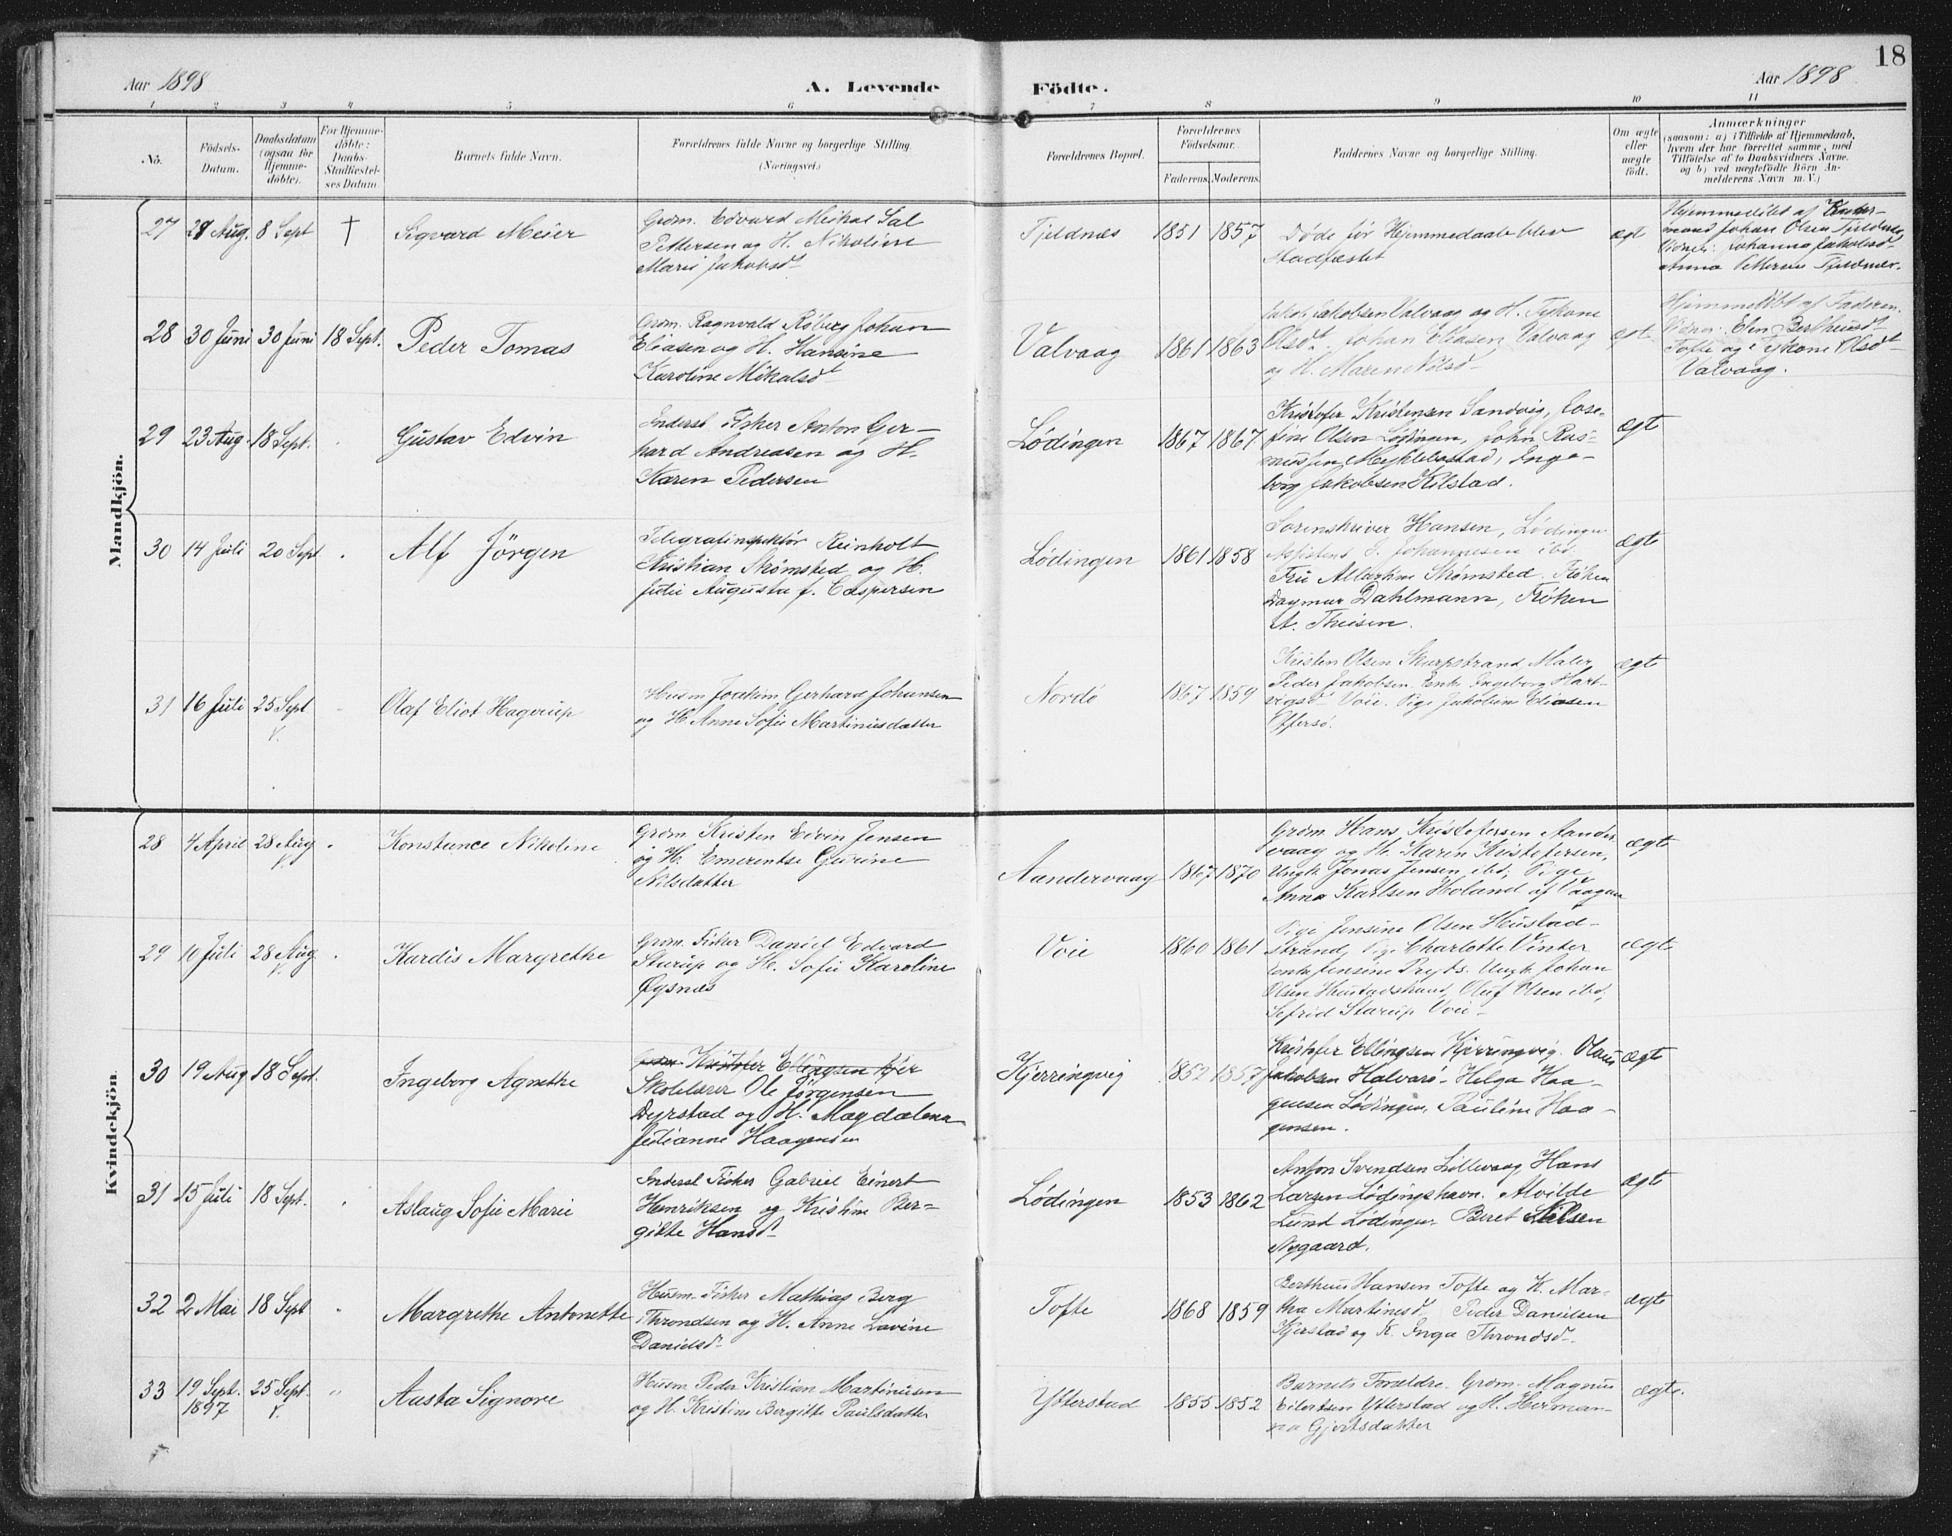 18
Aar 1898
A. Levende
Födte.
Aar 1898
1 2 3 4 5 6 7 8 9 10 11
No.
Födsels-
Datum.
Daabsdatum
(ogsaa for
Hjemme-
döbte).
For Hjemme-
döbte:
Daabs-
Stadfæstel-
ses Datum
Barnets fulde Navn.
Forældrenes fulde Navne og borgerlige Stilling.
(Næringsvei.)
Forældrenes Bopæl.
Forældrenes
Födselsaar.
Faderens.
Moderens.
Faddernes Navne og borgerlige Stilling.
Om ægte
eller
uægte
födt.
Anmærkninger
(saasom: a) i Tilfælde af Hjemmedaab,
hvem der har forrettet samme, med
Tilföielse af to Daabsvidners Navne,
og b) ved uægtefödte Börn An-
melderens Navn m. V.)
Mandkjön.
27
Aug.
8 Sept
†
Sigvard Meier
Grdm. Edvard Mikal Sal
Pettersen og H. Nikoline
Marie Jakobsdt
Tjeldnæs
1851
1857
Døde før Hjemmedaab blev
Stadfæstet
ægt
Hjemmedøbt af
Johan Olsen Tjeldnæs
Vidner: Johanna Jakobsd
Anna Pettersen Tjeldnæs.
28
30 Juni
30 Juni
18 Sept.
Peder Tomas
Grdm. Ragnvald Røberg Johan
Eliasen og H. Hansine
Karoline Mikalsdt
Valvaag
1861
1863
Jakob Jakobsen Valvaag og H. Tykone
Olsdt. Johan Eliasen Valvaag
og H. Maren Nilsd
egt
Hjemmedøbt af Faderen.
Vidner: Elen Berthusdt
Tofte og Tykone Olsdt
Valvaag.
29
23 Aug.
18 Sept.
Gustav Edvin
Inderst Fisker Anton Ger-
hard Andreasen og H.
Karen Pedersen
Lødingen
1867
1867
Kristofer Kristensen Sandvig, Jose-
fine Olsen Lødingen, John Ras-
mussen Myklebostad, Inge-
borg Jakobsen Kilstad.
ægt
30
14 Juli
20 Sept
Alf Jörgen
Telegrafinspektør Reinholt
Kristian Strømsted og H.
Julie Augusta f. Caspersen
Lødingen
1861
1858
Sorenskriver Hansen, Lødingen
Johannesen ibd.
Fru Albertine Strømsted. Frøken
Dagmar Dahlmann, Frøken
A. Theisen.
ægt
31
16 Juli
25 Sept
Olaf Eliot Hagerup
Husm Joakim Gerhard Johansen
og H. Anne Sofie Martinusdatter
Nordø
1867
1859
Kristen Olsen Skarpstrand Maler
Peder Jakobsen, Enk. Ingeborg Hart-
vigsd Voie. Pige Jakobine Eliasen
Offersø.
ægt
Kvindekjön.
28
4 April
28 Aug
Konstance Nikoline
Grdm Kristen Edvin Jensen
og H. Emerentse Gurine
Nilsdatter
Aandervaag
1867
1870
Grdm Hans Kristofersen Aander
vaag og H. Karen Kristofersen,
Ungk Jonas Jensen ibd, Pige
Anna Karlsen Holand af Vaagan
ægt
29
10 Juli
28 Aug.
Kardis Margrethe
Grdm. Fisker Daniel Edvard
Sturup og H. Sofie Karoline
Øysnæs
Voie
1860
1861
Pige Jensine Olsen Hustad-
strand, Pige Charlotte Vinter
Enke Jensine Prytz. Ungk. Johan
Olsen Hustadstrand, Oluf Olsen ibd,
Sefrid Sturup Voie
ægt
30
19 Aug
18 Sept.
Ingeborg Agnethe
Grdm Kristofer Ellingsen Kjer
Skolelærer Ole Jörgensen
Dyrstad og H. Magdalena
Julianne Haagensen
Kjerringvig
1852
1857
Kristofer Ellingsen Kjerringvig. Olaus
Jakobsen Halvarø- Helga Haa-
gensen Lødingen, Pauline Haa-
gensen.
ægt
31
15 Juli
18 Sept.
Aslaug Sofie Marie
Inderst Fisker Gabriel Einert
Henriksen og Kristine Ber-
gitte Hansd
Lødingen
1853
1862
Anton Svendsen Lillevaag, Hans
Larsen Lødingshavn. Alvilde
Lund Lødingen. Beret Nilsen
Nygaard.
ægt
32
2 Mai
18 Sept
Margrethe Antonette
Husm. Fisker Mathias Berg
Throndsen og H. Anne Lovine
Danielsd
Tofte
1868
1859
Berthus Hansen Tofte og K. Mar-
tha Martinesd. Peder Danielsen
Kjerstad og K. Inga Throndsd.
ægte
33
19 Sept.
1897
25 Sept.
Aasta Signore
Husm Peder Kristian Martinusen
og H. Kristine Bergitte Paulsdatter
Ytterstad
1855
1852
Barnets Forældre, Grdm. Magnus
Eilertsen Ytterstad og H. Herman-
na Gjertsdatter
ægte.